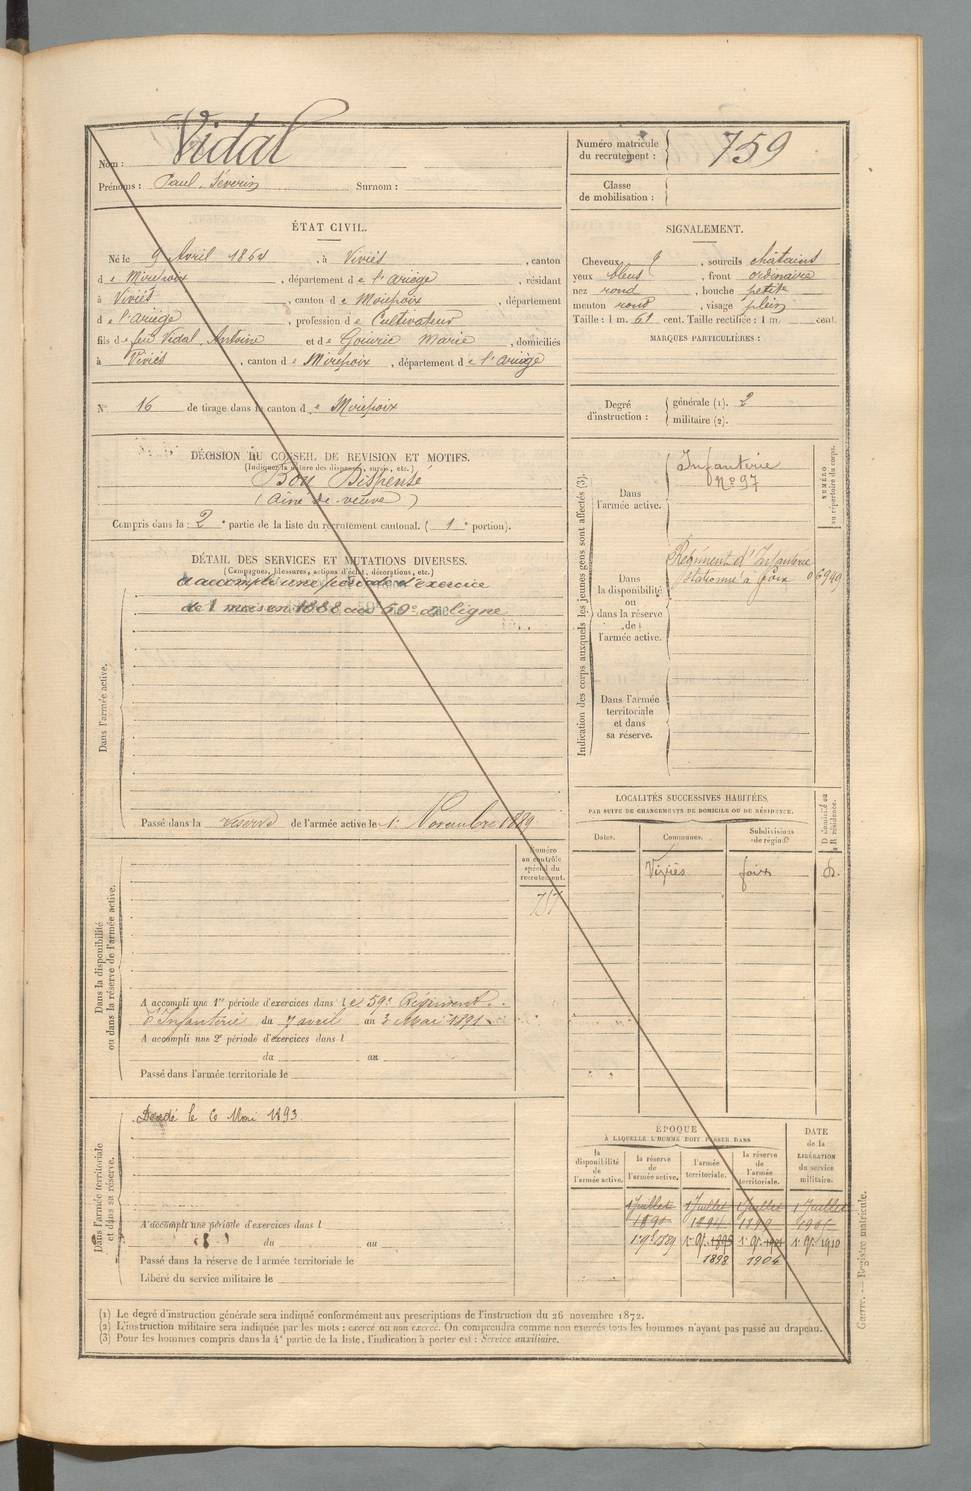 Nom : Vidal
Prénoms : Paul, Séverin Surnom :
Numéro matricule du recrutement : 759
Classe de mobilisation :
ÉTAT CIVIL.
Né le 9 Avril 1864, à Viviès, canton
de Mirepoix, département de l'Ariège, résidant
à Viviès, canton de Mirepoix, département
de l'Ariège, profession de Cultivateur
fils de feu Vidal, Antoine et de Gouric Marie, domiciliés
à Viviès, canton de Mirepoix, département de l'Ariège
N° 16 de tirage dans le canton de Mirepoix
SIGNALEMENT.
Cheveux, sourcils châtains
yeux bleus, front ordinaire
nez rond, bouche petite
menton rond, visage plein
Taille : 1 m. 61 cent. Taille rectifiée : 1 m. cent.
MARQUES PARTICULIÈRES :
Degré d'instruction : générale (1). 2
militaire (2).
DÉCISION DU CONSEIL DE REVISION ET MOTIFS.
(Indiquer la nature des dispenses, sursis, etc.)
Bon Dispensé
(Aîné de veuve)
Compris dans la 2e partie de la liste du recrutement cantonal. (1e portion).
DÉTAIL DES SERVICES ET MUTATIONS DIVERSES.
(Campagnes, blessures, actions d'éclat, décorations, etc.)
Dans l'armée active.
a accompli une période d'exercice
de 1 mois en 1888 au 59e de ligne
Passé dans la réserve de l'armée active le 1er Novembre 1889
Indication des corps auxquels les jeunes gens sont affectés (3).
NUMÉRO au répertoire du corps.
Dans l'armée active.
Infanterie
N° 97
Dans la disponibilité ou dans la réserve de l'armée active.
Régiment d'Infanterie
stationné à Foix 05949
Dans l'armée territoriale et dans sa réserve.
LOCALITÉS SUCCESSIVES HABITÉES,
PAR SUITE DE CHANGEMENTS DE DOMICILE OU DE RÉSIDENCE.
Dates. Communes. Subdivisions de région. D domicile ou R résidence.
Viviès foix D.
Dans la disponibilité ou dans la réserve de l'armée active.
Numéro au contrôle spécial du recrutement.
A accompli une 1re période d'exercices dans le 59e Régiment
d'Infanterie du 7 avril au 3 Mai 1891
A accompli une 2e période d'exercices dans l
du au
Passé dans l'armée territoriale le
Dans l'armée territoriale et dans sa réserve.
Décédé le 6 Mai 1893
A accompli une période d'exercices dans l
du au
Passé dans la réserve de l'armée territoriale le
Libéré du service militaire le
ÉPOQUE
À LAQUELLE L'HOMME DOIT PASSER DANS
la disponibilité de l'armée active. la réserve de l'armée active. l'armée territoriale. la réserve de l'armée territoriale. DATE de la LIBÉRATION du service militaire.
1 Juillet 1 Juillet 1 Juillet 1 Juillet
1890 1894 1899
1898 1904
(1) Le degré d'instruction générale sera indiqué conformément aux prescriptions de l'instruction du 26 novembre 1872.
(2) L'instruction militaire sera indiquée par les mots : exercé ou non exercé. On comprendra comme non exercés tous les hommes n'ayant pas passé au drapeau.
(3) Pour les hommes compris dans la 4e partie de la liste, l'indication à porter est : Service auxiliaire.
Guerre. — Registre matricule.